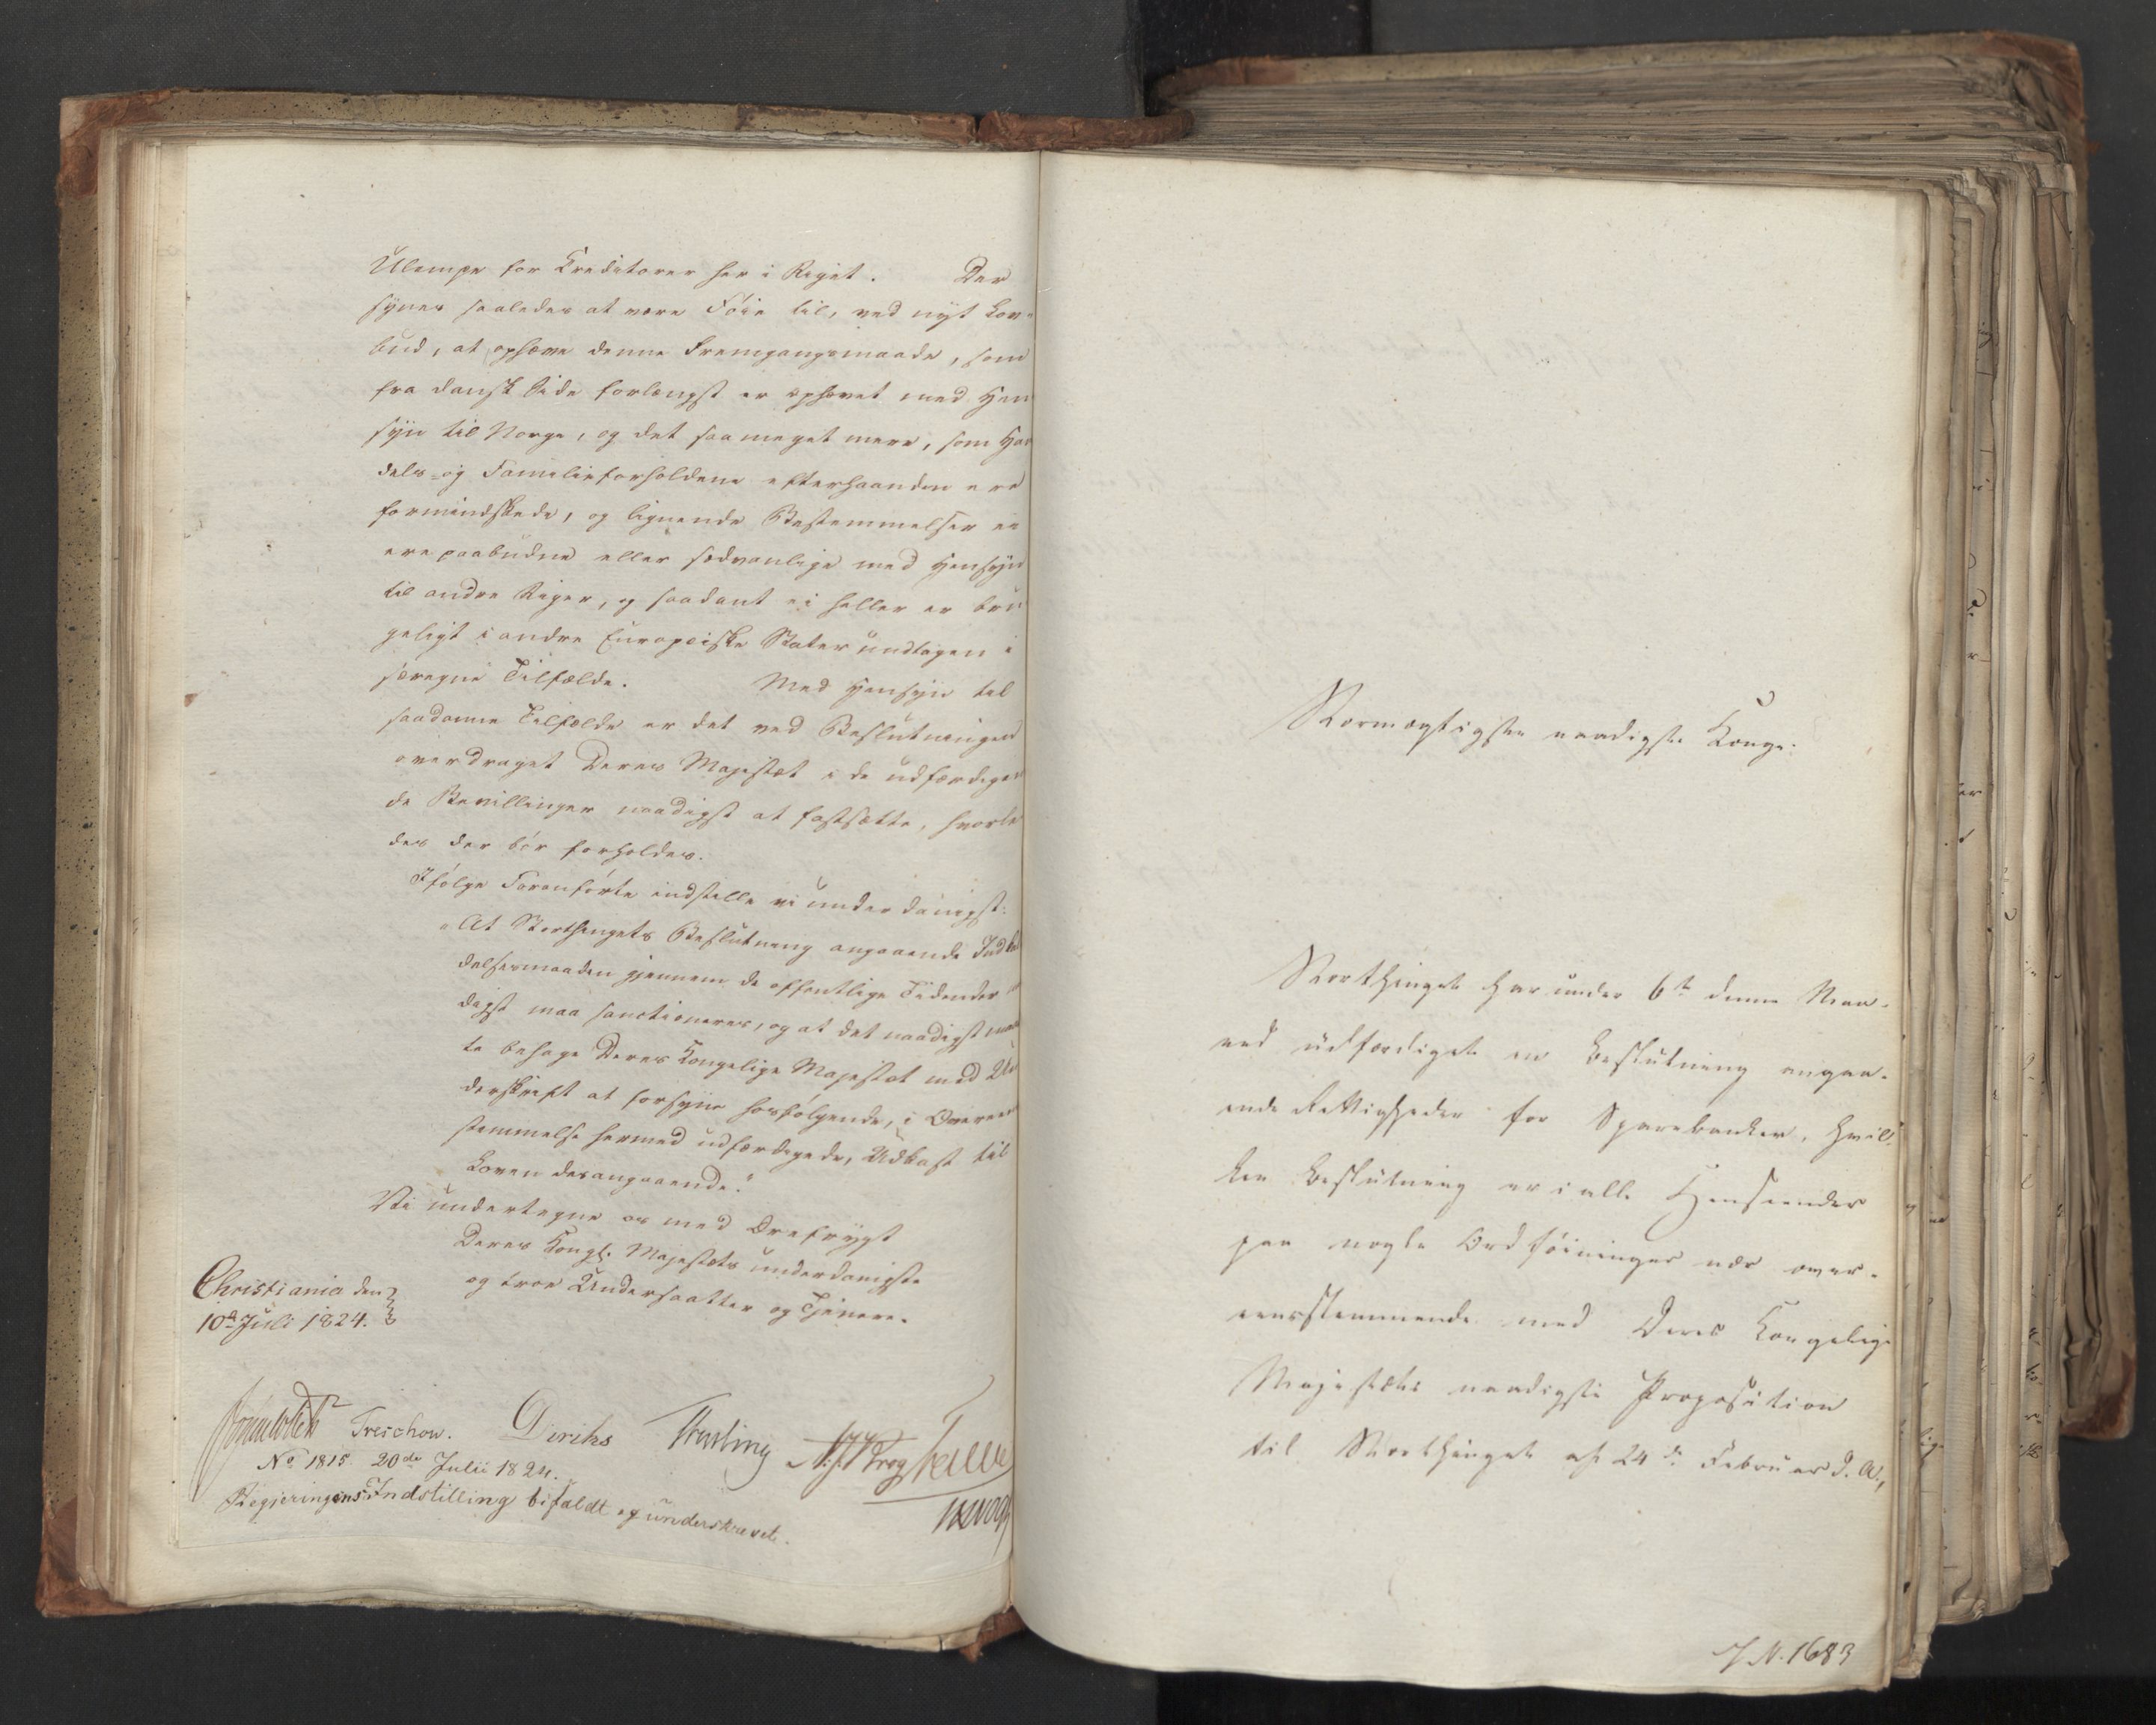 Ulempe for Creditorer her i Riget. Der
synes saaledes at være Föie til, ved nyt Lov-
bud, at ophæve denne Fremgangsmaade, som
fra dansk Side forlængst er ophævet med Hen
syn til Norge, og det saa meget mere, som Han
dels- og Familieforholdene efterhaanden ere
formindskede, og lignende Bestemmelser ei
ere paabudne eller sædvanlige med Hensyn
til andre Riger, og saadant ei heller er bru
geligt i andre Europeiske Stater undtagen i
særegne Tilfælde. Med Hensyn til
saadanne Tilfælde er det ved Beslutningen
overdraget Deres Majestæt i de udfærdigen
de Bevillinger naadigst at fastsætte, hvorle
des der bör forholdes.
Ifölge Foranförte indstille vi underdanigst:
"At Storthingets Beslutning angaaende Indkal
delsesmaaden gjennem de offentlige Tidender
digst maa sanctioneres, og at det naadigst maa
te behage Deres Kongelige Majestæt med Un
derskrift at forsyne hosfölgende, i Overeens
stemmelse hermed udfærdigede, Udkast til
Loven desangaaende."
Vi undertegne os med Ærefrygt
Deres Kongl. Majestæts underdanigste
og troe Undersaatter og Tjenere.
Christiania den
10de Juli 1824.
Treschow. Diriks N. J. Krog Falbe
No 1815. 20de Julii 1824.
Regjeringens Indstilling bifaldt og underskrevet.
Stormægtigste naadigste Konge.
Storthinget har under 6te denne Maa-
ned udfærdiget en Beslutning angaa-
ende Rettigheder for Sparebanker, hvil
ken Beslutning er i alle Henseender
paa nogle Ordföininger nær over-
eensstemmende med Deres Kongelige
Majestæts naadigste Proposition
til Storthinget af 24de Februar d. A.,
J. N. 1683